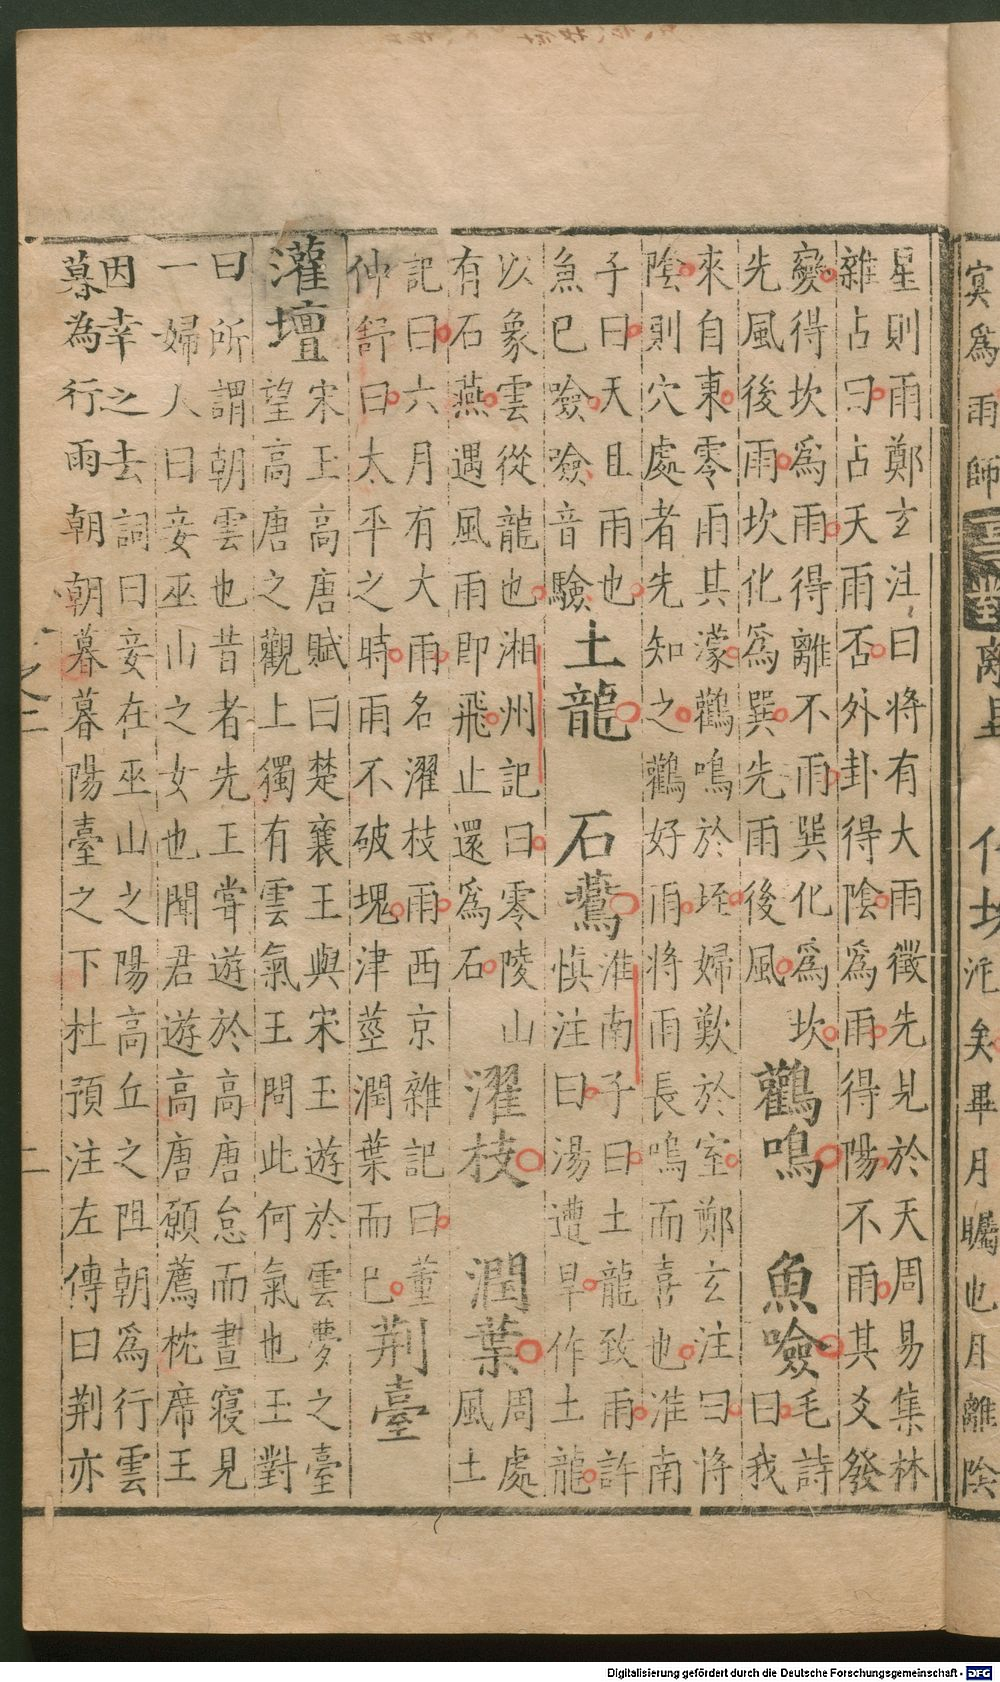 寘爲雨師
事對
離畢
作坎
矣畢月矚也月離陰
星則雨鄭玄注曰將有大雨徵先見於天周易集林
雜占曰占天雨否外卦得陰爲雨得陽不雨其爻發
變得坎爲雨得離不雨巽化爲坎
先風後雨坎化爲巽先雨後風
鸛鳴 魚噞
毛詩
曰我
來自東零雨其濛鸛鳴於垤婦歎於室鄭玄注曰將
陰則穴處者先知之鸛好雨將雨長鳴而喜也淮南
子曰天且雨也
魚已噞噞音驗
土龍 石鷰
淮南子曰土龍致雨許
慎注曰湯遭旱作土龍
以象雲從龍也湘州記曰零陵山
有石燕遇風雨即飛止還爲石
濯枝 潤葉
周處
風土
記曰六月有大雨名濯枝雨西京雜記曰董
仲舒曰太平之時雨不破塊津莖潤葉而已
荆臺
灌壇
宋玉高唐賦曰楚襄王與宋玉遊於雲夢之臺
望高唐之觀上獨有雲氣王問此何氣也玉對
曰所謂朝雲也昔者先王嘗遊於高唐怠而晝寢見
一婦人曰妾巫山之女也聞君遊高唐願薦枕席王
因幸之去詞曰妾在巫山之陽高丘之阻朝爲行雲
暮為行雨朝朝暮暮陽臺之下杜預注左傳曰荆亦
卷二
二
Digitalisierung gefördert durch die Deutsche Forschungsgemeinschaft - DFG